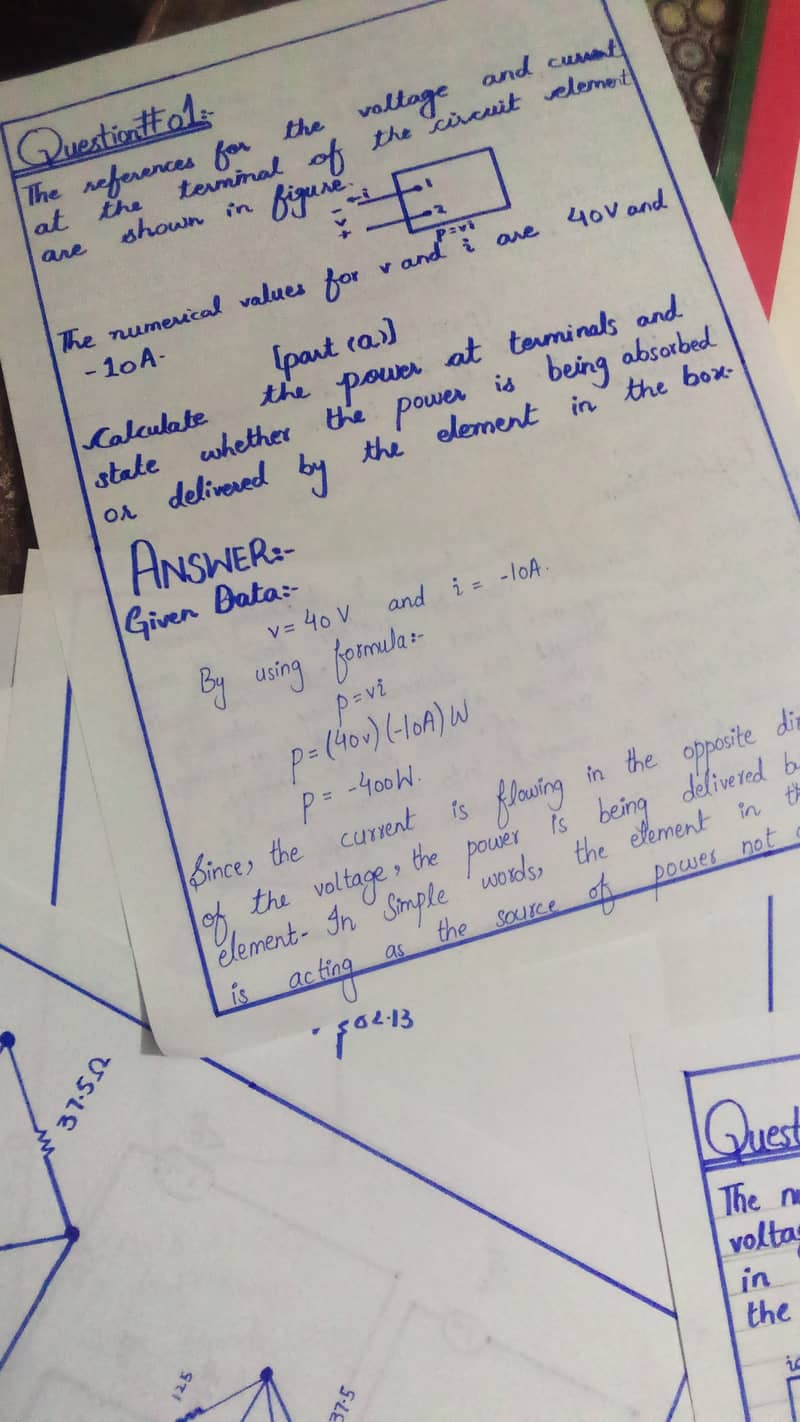 Question#01:-
The references for the voltage and current
at the terminal of the circuit element
are shown in figure.
- ←i 1
v
+ 2
p=vi
The numerical values for v and i are 40V and
-10A.
[part (a)]
Calculate the power at terminals and
state whether the power is being absorbed
or delivered by the element in the box.
ANSWER:-
Given Data:-
v = 40 V and i = -10A.
By using formula:-
p=vi
p= (40v) (-10A) W
p= -400W.
Since, the current is flowing in the opposite dir
of the voltage, the power is being delivered b
element. In simple words, the element in th
is acting as the source of power not
37.5Ω
125
37.5
Quest
The n
volta
in
the